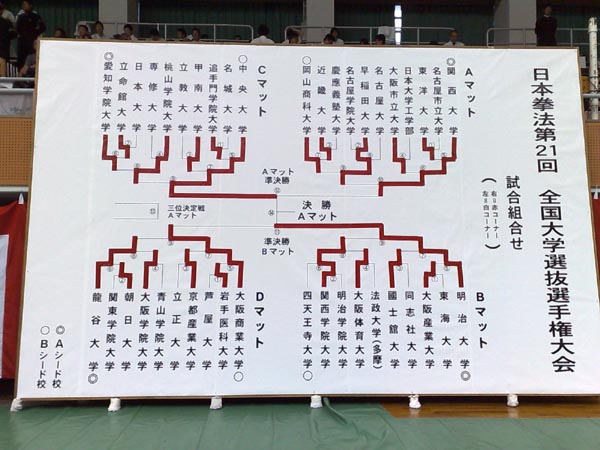 日本拳法第21回 全国大学選抜選手権大会
試合組合せ
(右=赤コーナー
左=白コーナー)
Aマット
◎関西大学
名古屋市立大学
東洋大学
日本大学工学部
大阪市立大学
名古屋大学
早稲田大学
名古屋学院大学
慶應義塾大学
近畿大学
○岡山商科大学
Cマット
○中央大学
名城大学
追手門学院大学
甲南大学
立教大学
桃山学院大学
専修大学
日本大学
立命館大学
◎愛知学院大学
Aマット
準決勝
決勝
Aマット
準決勝
Bマット
三位決定戦
Aマット
Bマット
明治大学◎
東海大学
大阪産業大学
同志社大学
國士館大学
法政大学(多摩)
大阪体育大学
明治学院大学
関西学院大学
四天王寺大学○
Dマット
大阪商業大学○
岩手医科大学
芦屋大学
京都産業大学
立正大学
青山学院大学
大阪学院大学
朝日大学
関東学院大学
龍谷大学◎
◎Aシード校
○Bシード校